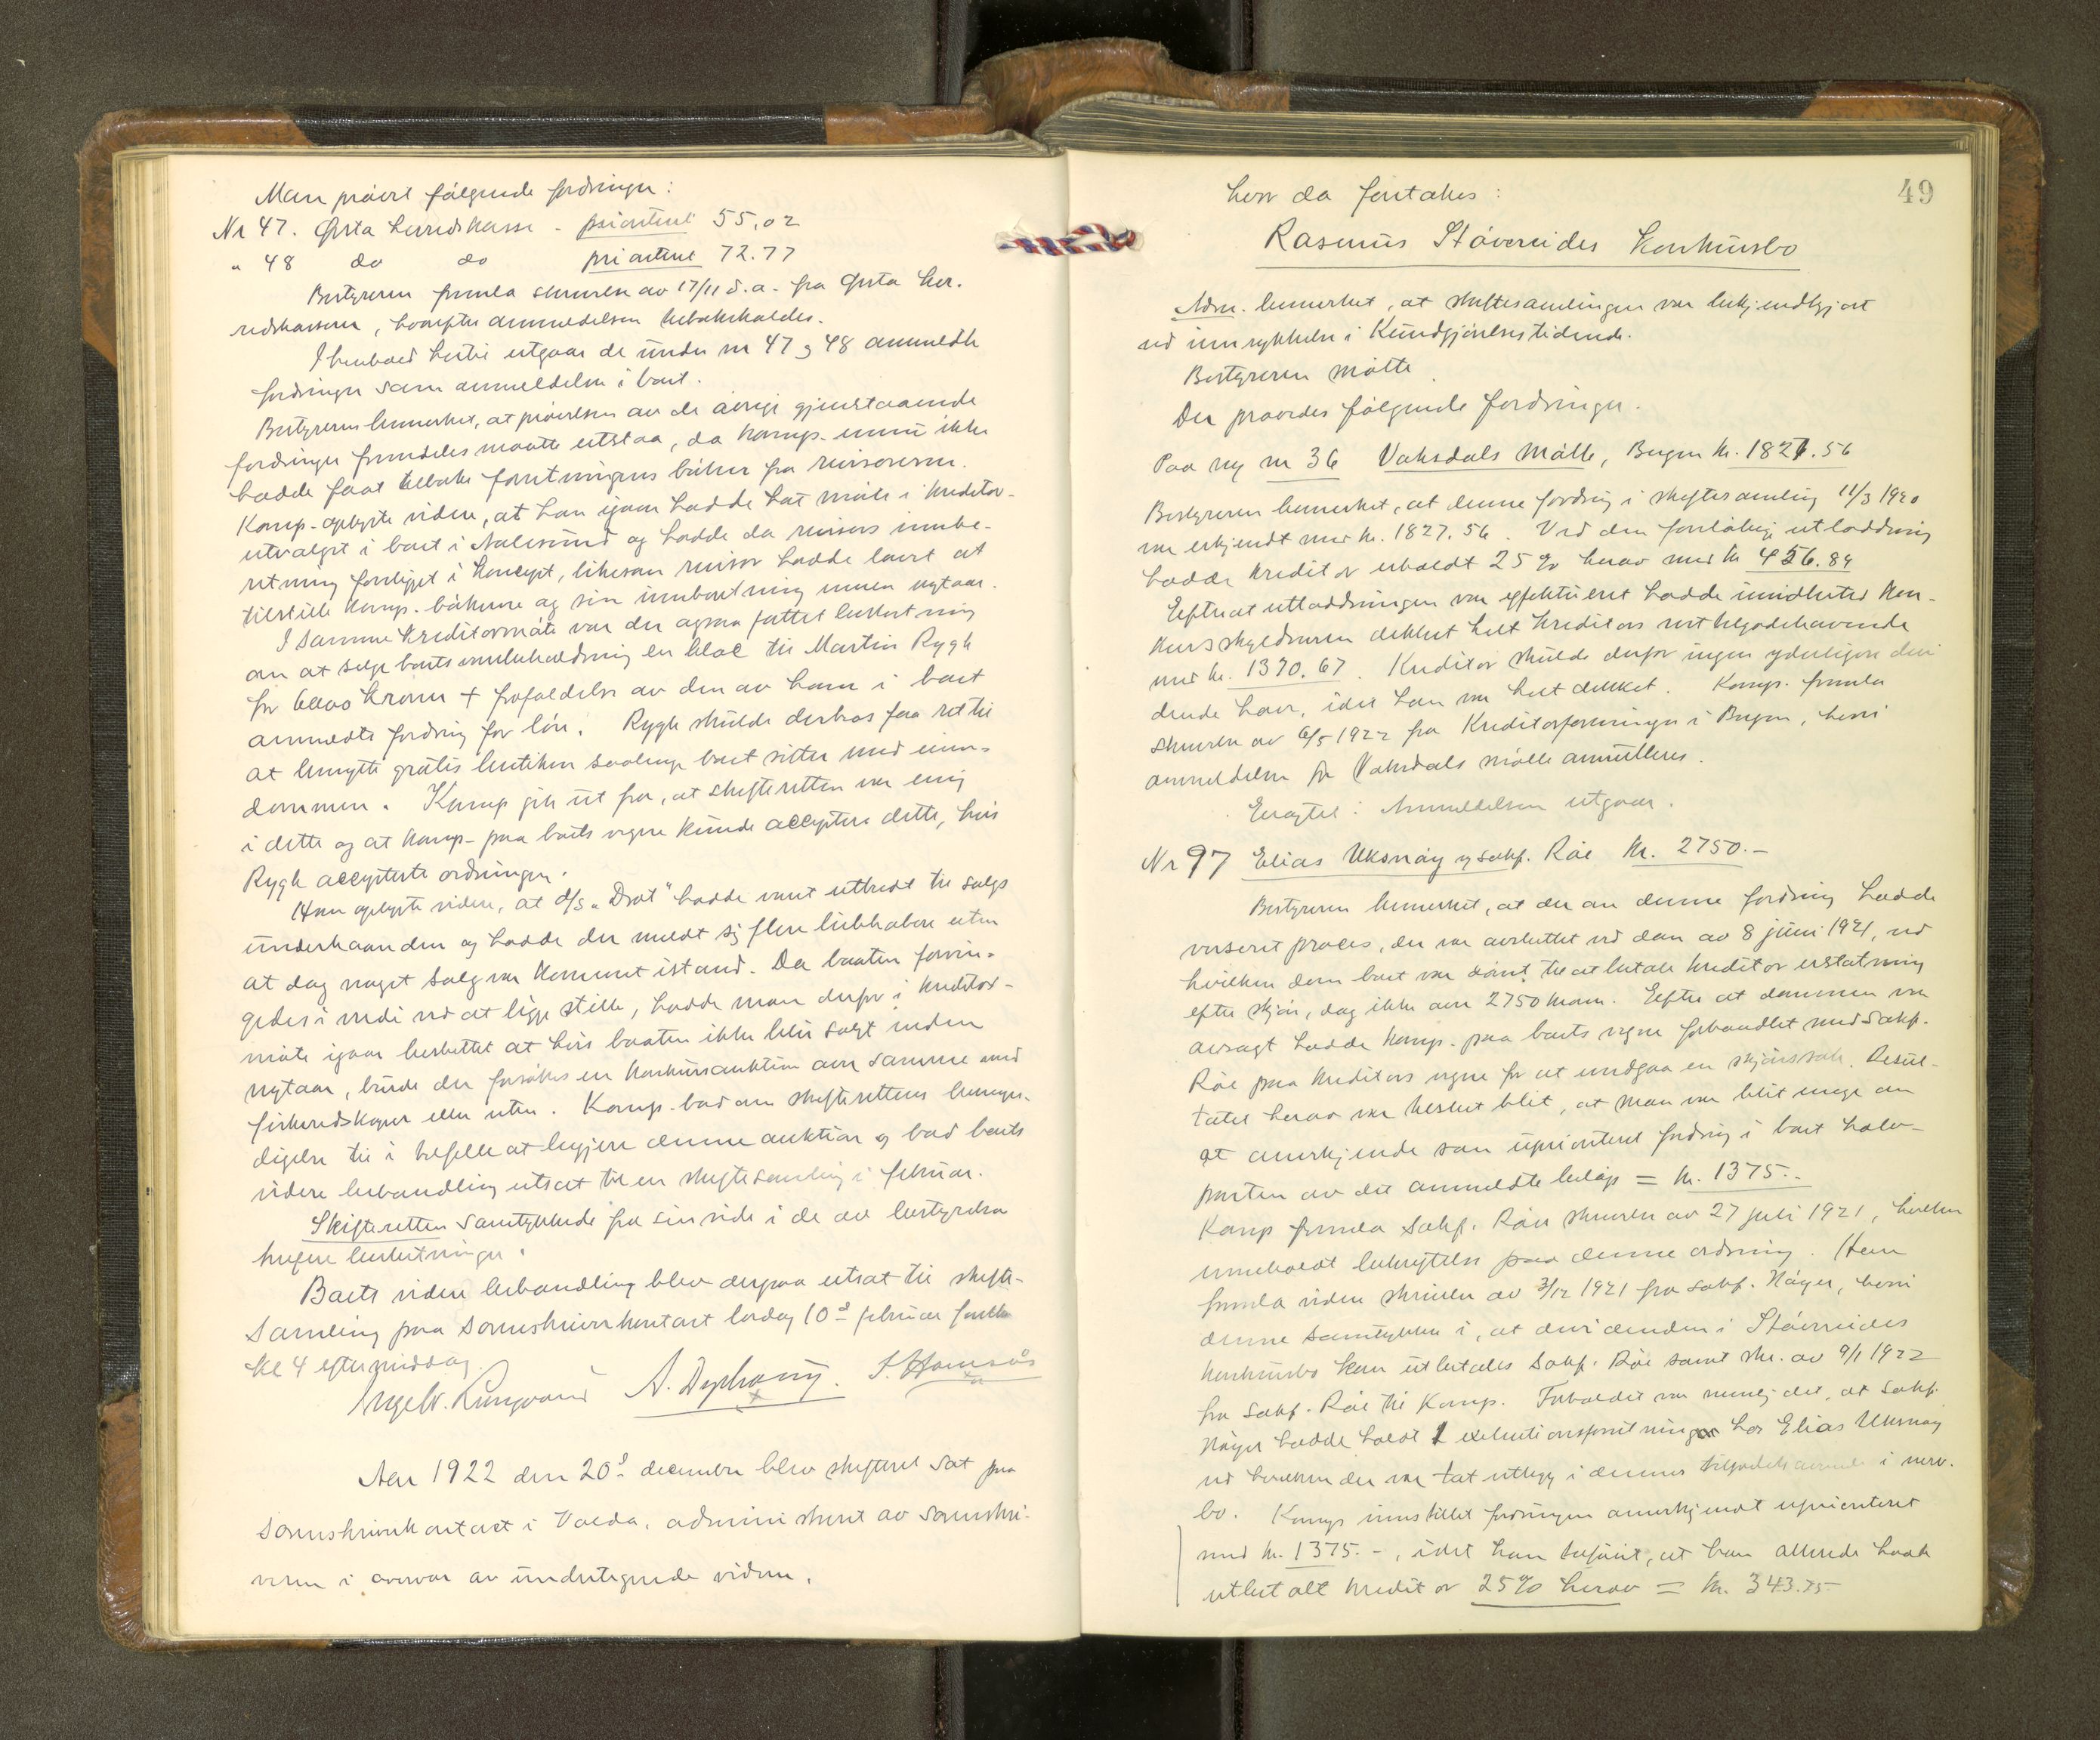 Man prøvet følgende fordringer:
Nr 47. Ørsta herredskasse - prioritert 55,02
" 48 do do prioritert 72.77
Bestyreren fremla skrivelse av 17/11 d.a. fra Ørsta her-
redskasserer, hvorefter anmeldelsen tilbakekaldes.
I henhold hertil utgaar de under nr 47 og 48 anmeldte
fordringer som anmeldelse i boet.
Bestyreren bemerket, at prøvelsen av de øvrige gjenstaaende
fordringer fremdeles maatte utstaa, da komp. ennu ikke
hadde faat tilbake forretningens bøker fra revisoren.
Komp. oplyste videre, at han igaar hadde hat møte i kreditor-
utvalget i boet i Aalesund og hadde da revisors innbe-
retning foreligget i koncept, likesom revisor hadde lovet at
tilstille komp. bøkerne og sin innberetning innen nytaar.
I samme kreditormøte var der ogsaa fattet beslutning
om at selge boets innbeholdning en bloc til Martin Rygh
for 6000 kroner + frafaldelse av den av ham i boet
anmeldte fordring for løn. Rygh skulde derhos faa ret til
at benytte gratis butiken saalenge boet sitter med eien-
dommen. Komp gik ut fra, at skifteretten var enig
i dette og at komp. paa boets vegne kunde acceptere dette, hvis
Rygh accepterte ordningen.
Han oplyste videre, at d/s "Drot" hadde været utbudt til salgs
underhaanden og hadde der meldt sig flere liebhabere uten
at dog noget salg var kommet istand. Da baaten forrin-
gedes i verdi ved at ligge stille, hadde man derfor i kreditor-
møte igaar besluttet at hvis baaten ikke blir solgt inden
nytaar, burde der forsøkes en konkursauktion over samme med
fiskeredskaper eller uten. Komp. bad om skifterettens bemyn-
digelse til i tilfelle at begjære denne auktion og bad boets
videre behandling utsat til en skiftesamling i februar.
Skifteretten samtykkede fra sin side i de av bestyrelsen
trufne beslutninger.
Boets videre behandling blev derpaa utsat til skifte-
samling paa sorenskriverkontoret lørdag 10de februar førstk
kl 4 eftermiddag.
Aar 1922 den 20de december blev skifteret sat paa
sorenskriverkontoret i Volda, administrert av sorenskri-
veren i overvær av undertegnede vidner,
49
hvor da foretokes:
Rasmus Støvereides konkursbo
Adm. bemerket, at skiftesamlingen var bekjendtgjort
ved innrykkelse i Kundgjørelsestidende.
Bestyreren møtte
Der prøvedes følgende fordringer.
Paa ny nr 36 Vaksdals Mølle, Bergen kr. 1827.56
Bestyreren bemerket, at denne fordring i skiftesamling 11/3 1920
var erkjendt med kr. 1827.56. Ved den foreløbige utloddning
hadde kreditor erholdt 25 % herav med kr 456.89
Efterat utloddningen var effektueret hadde imidlertid kon-
kursskyldneren dekket helt kreditors resttilgodehavende
med kr. 1370.67. Kreditor skulde derfor ingen yderligere divi-
dende have, idet han var helt dekket. Komp. fremla
skrivelse av 6/5 1922 fra Kreditorforeningen i Bergen, hvori
anmeldelsen for Vaksdals Mølle annulleres.
Eragtet: Anmeldelsen utgaar.
Nr 97 Elias Uksnøy v/ sakf. Røe kr. 2750.-
Bestyreren bemerket, at der om denne fordring hadde
verseret proces, der var avsluttet ved dom av 8 juni 1921, ved
hvilken dom boet var dømt til at betale kreditor erstatning
efter skjøn, dog ikke over 2750 kroner. Efter at dommen var
avsagt hadde komp. paa boets vegne forhandlet med sakf.
Røe paa kreditors vegne for at undgaa en skjønssak. Resul-
tatet herav var tilslut blit, at man var blit enige om
at anerkjende som uprioritert fordring i boet halv-
parten av det anmeldte beløp = kr. 1375.-
Komp fremla sakf. Røes skrivelse av 27 juli 1921, hvilken
inneholdt bekreftelse paa denne ordning. Han
fremla videre skrivelse av 3/12 1921 fra sakf. Høyer, hvori
denne samtykker i, at dividenden i Støvereides
konkursbo kan utbetales sakf. Røe samt skr. av 9/1 1922
fra sakf. Røe til komp. Forholdet var nemlig det, at sakf.
Høyer hadde holdt 1 exekutionsforretning hos Elias Uksnøy
ved hvilken der var tat utlegg i dennes tilgodehavende i nærv.
bo. Komp innstillet fordringen anerkjendt uprioriteret
med kr. 1375.-, idet han tilføiet, at han allerede hadde
utbetalt kreditor 25% herav = kr. 343.75